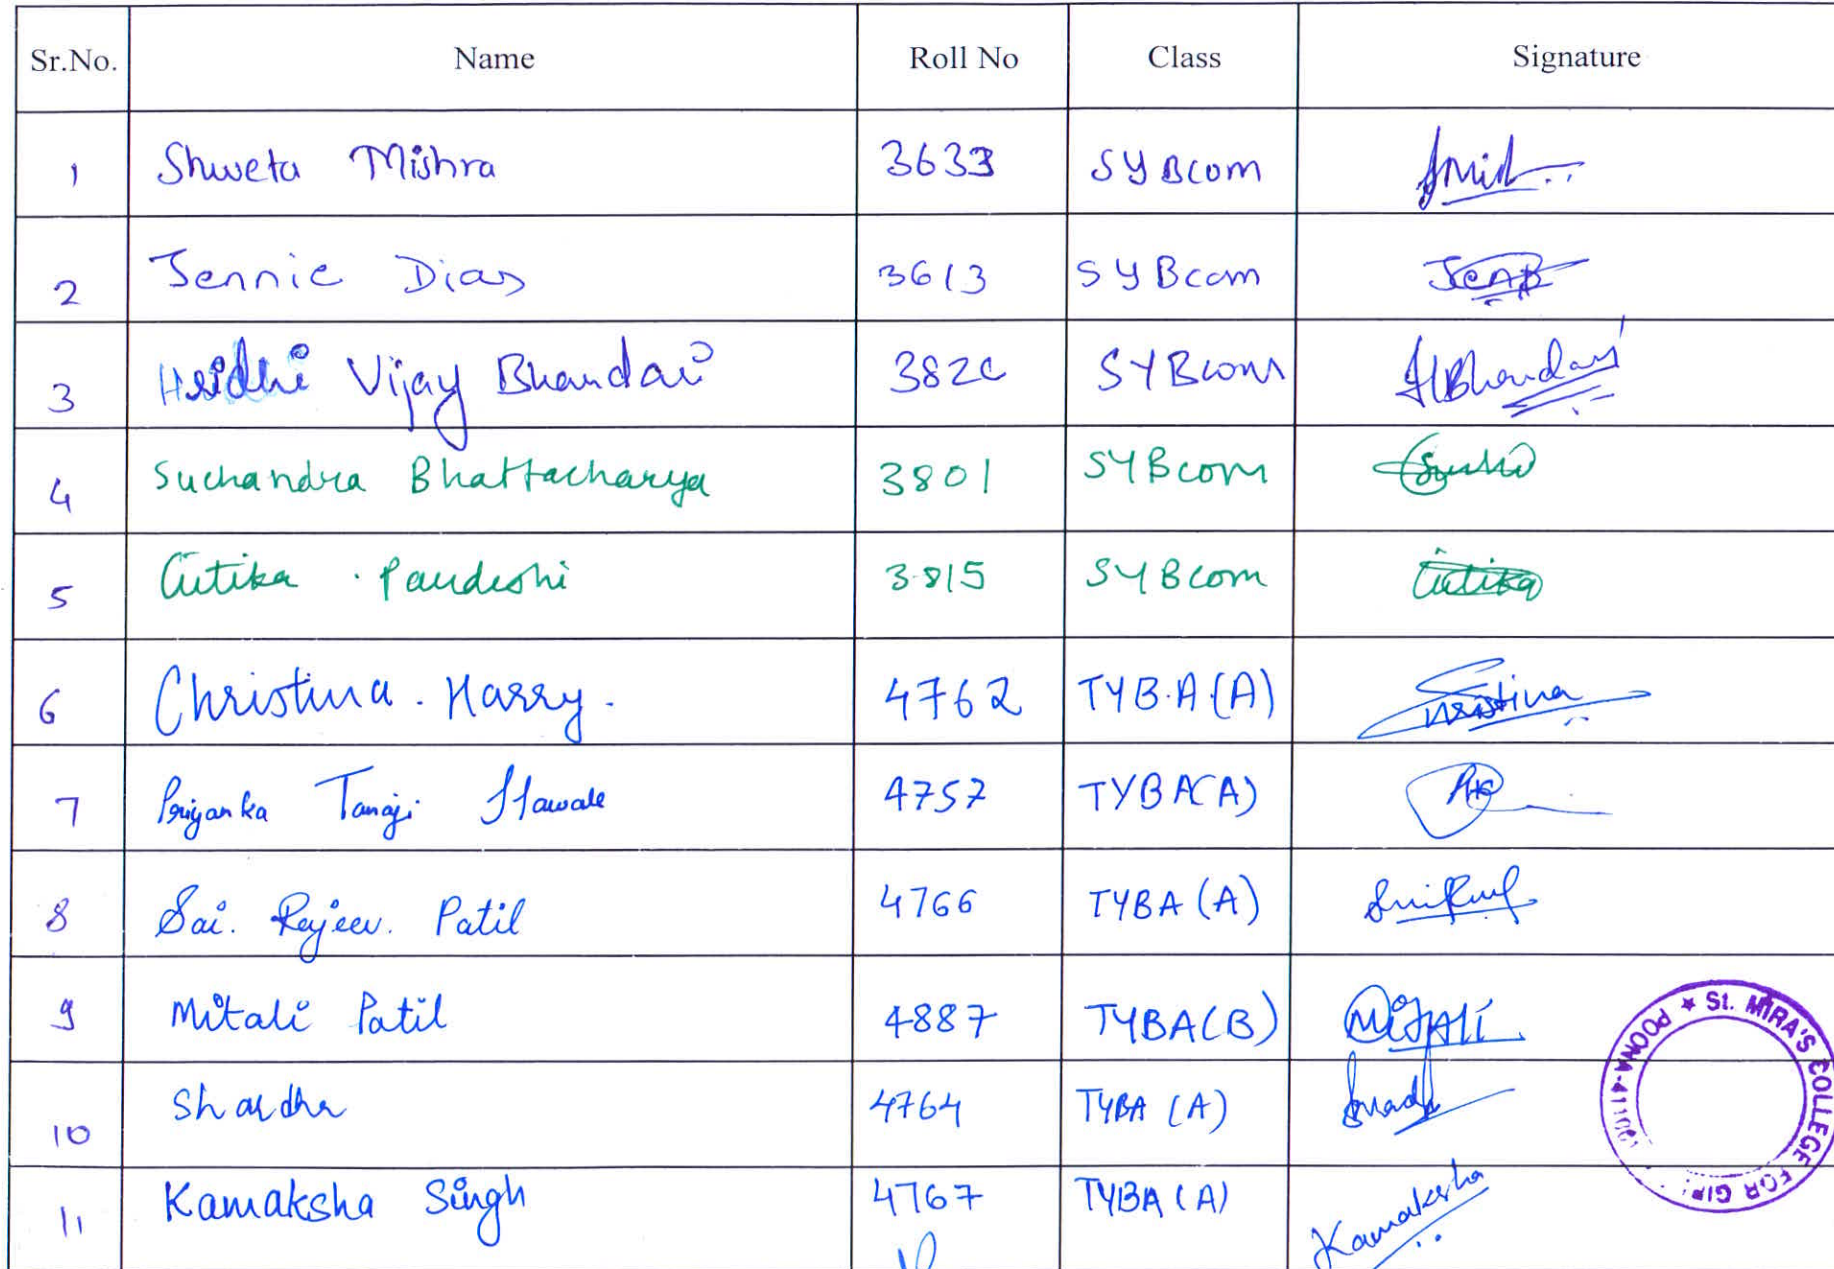 Sr.No. Name Roll No Class Signature
1 Shweta Mishra 3633 SYBcom
2 Jennie Dias 3613 SYBcom JenB
3 Hridhi Vijay Bhandari 382c SYBcom HBhandari
4 Suchandra Bhattacharya 3801 SYBcom
5 Pardeshi 3815 SYBcom
6 Christina . Harry . 4762 TYB.A (A) Christina
7 Priyanka Tanaji Hawale 4757 TYBA(A)
8 Sai. Rajeev. Patil 4766 TYBA (A)
9 Mitali Patil 4887 TYBA(B) MITALI
10 Shardha 4764 TYBA (A)
11 Kamaksha Singh 4767 TYBA (A) Kamaksha
★ St. MIRA'S COLLEGE FOR POONA-411001